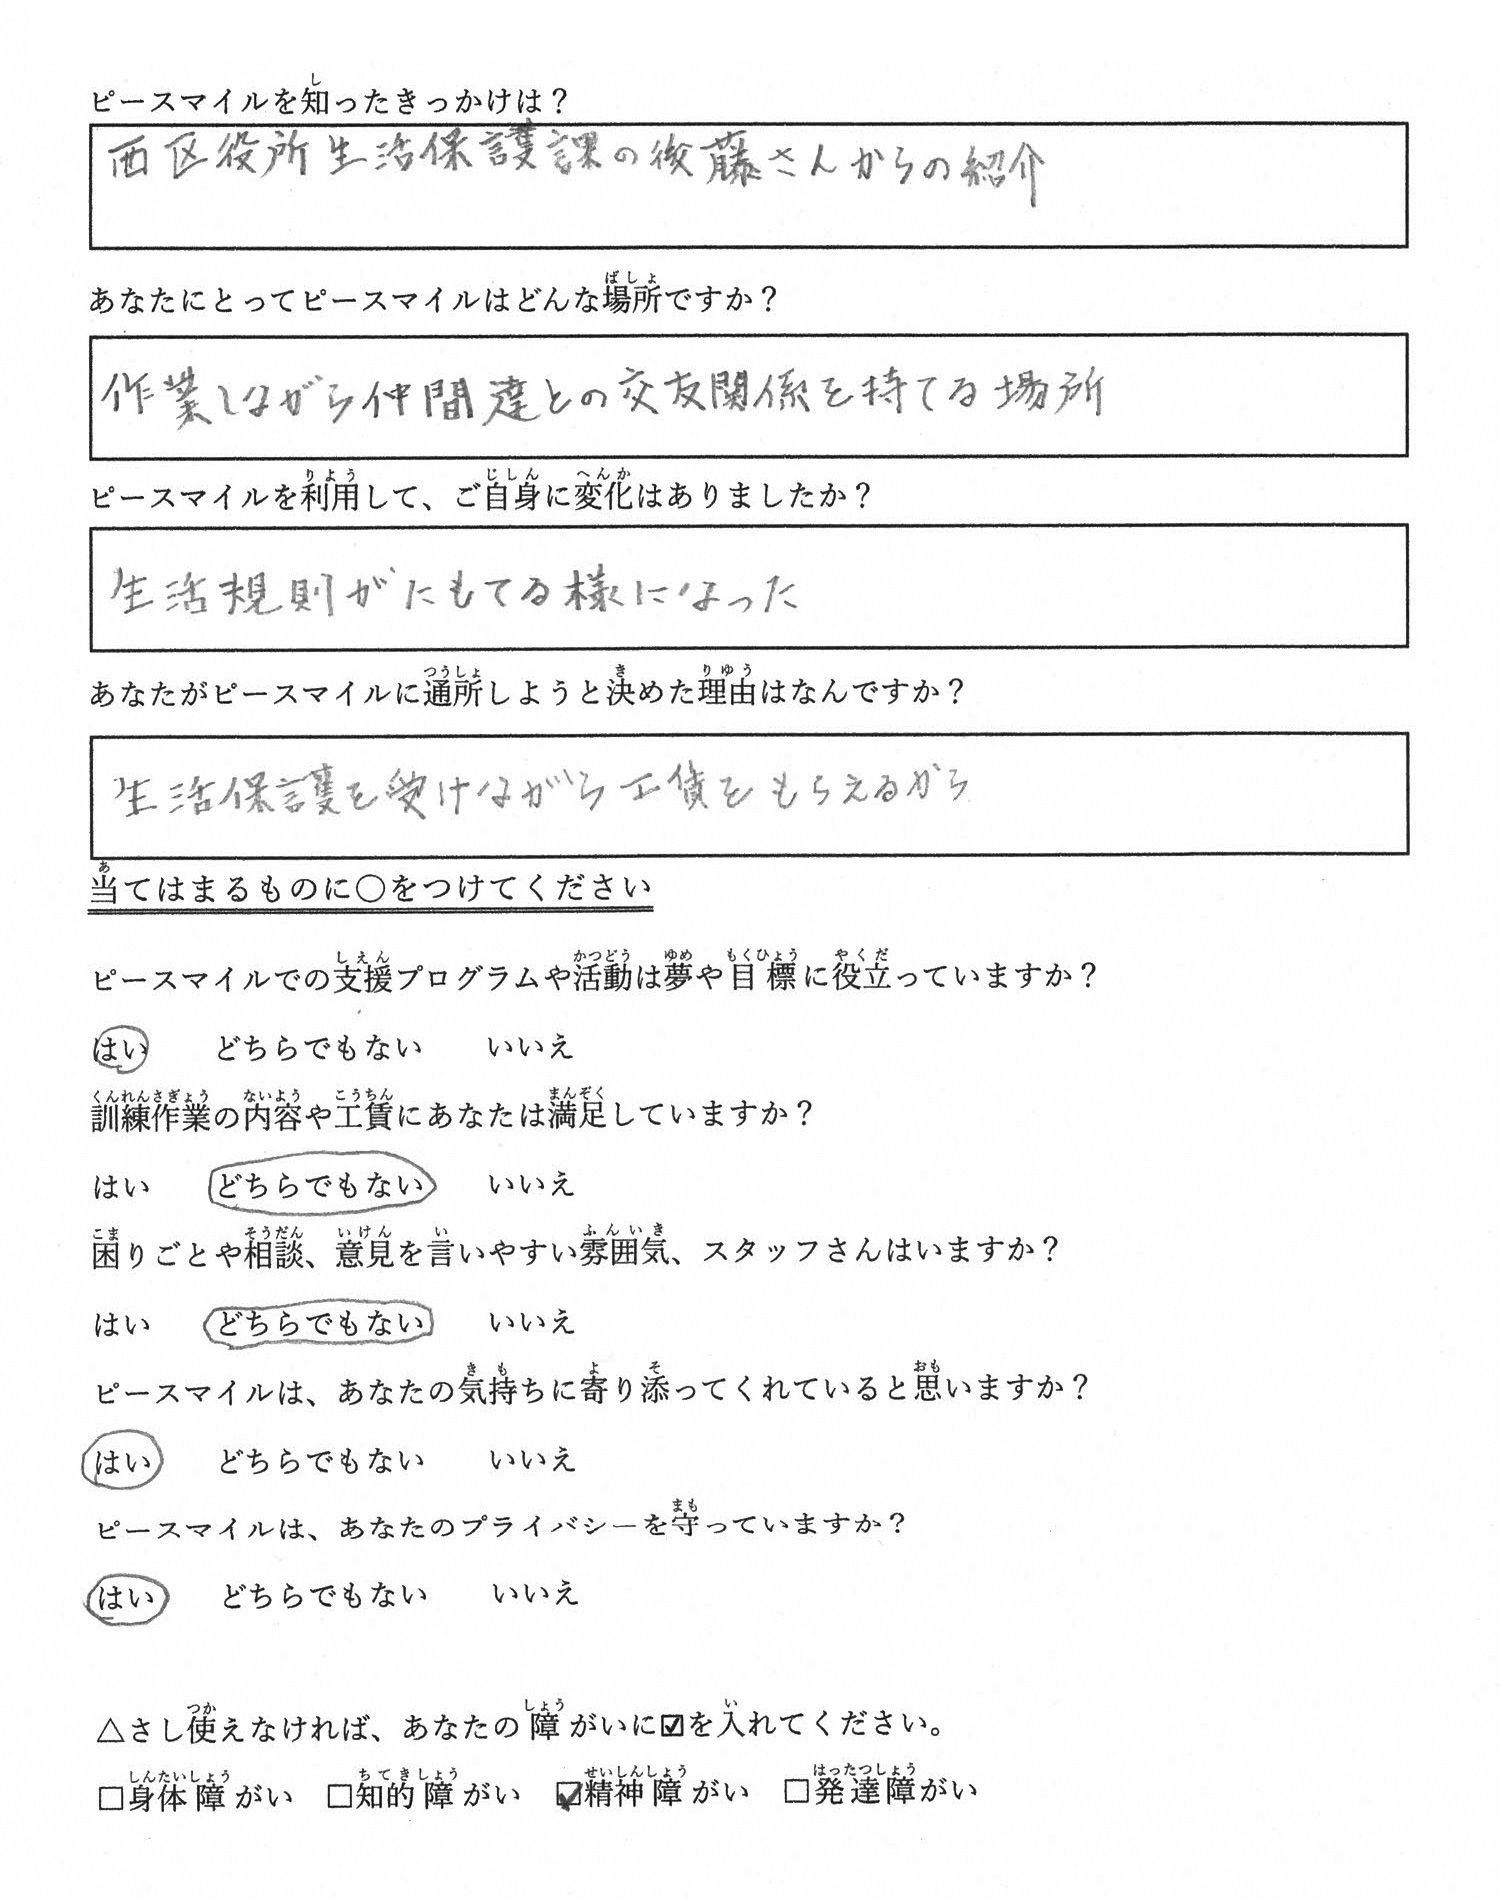 ピースマイルを知ったきっかけは？
西区役所生活保護課の後藤さんからの紹介
あなたにとってピースマイルはどんな場所ですか？
作業しながら仲間達との交友関係を持てる場所
ピースマイルを利用して、ご自身に変化はありましたか？
生活規則がたもてる様になった
あなたがピースマイルに通所しようと決めた理由はなんですか？
生活保護を受けながら工賃をもらえるから
当てはまるものに〇をつけてください
ピースマイルでの支援プログラムや活動は夢や目標に役立っていますか？
はい どちらでもない いいえ
訓練作業の内容や工賃にあなたは満足していますか？
はい どちらでもない いいえ
困りごとや相談、意見を言いやすい雰囲気、スタッフさんはいますか？
はい どちらでもない いいえ
ピースマイルは、あなたの気持ちに寄り添ってくれていると思いますか？
はい どちらでもない いいえ
ピースマイルは、あなたのプライバシーを守っていますか？
はい どちらでもない いいえ
△さし使えなければ、あなたの障がいに☑を入れてください。
□身体障がい □知的障がい ☑精神障がい □発達障がい